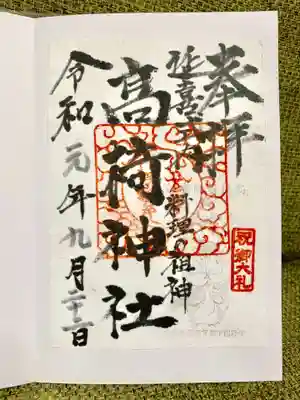 奉拝
延喜式内社 料理の祖神
高椅神社
令和元年九月二十二日
祝御大礼